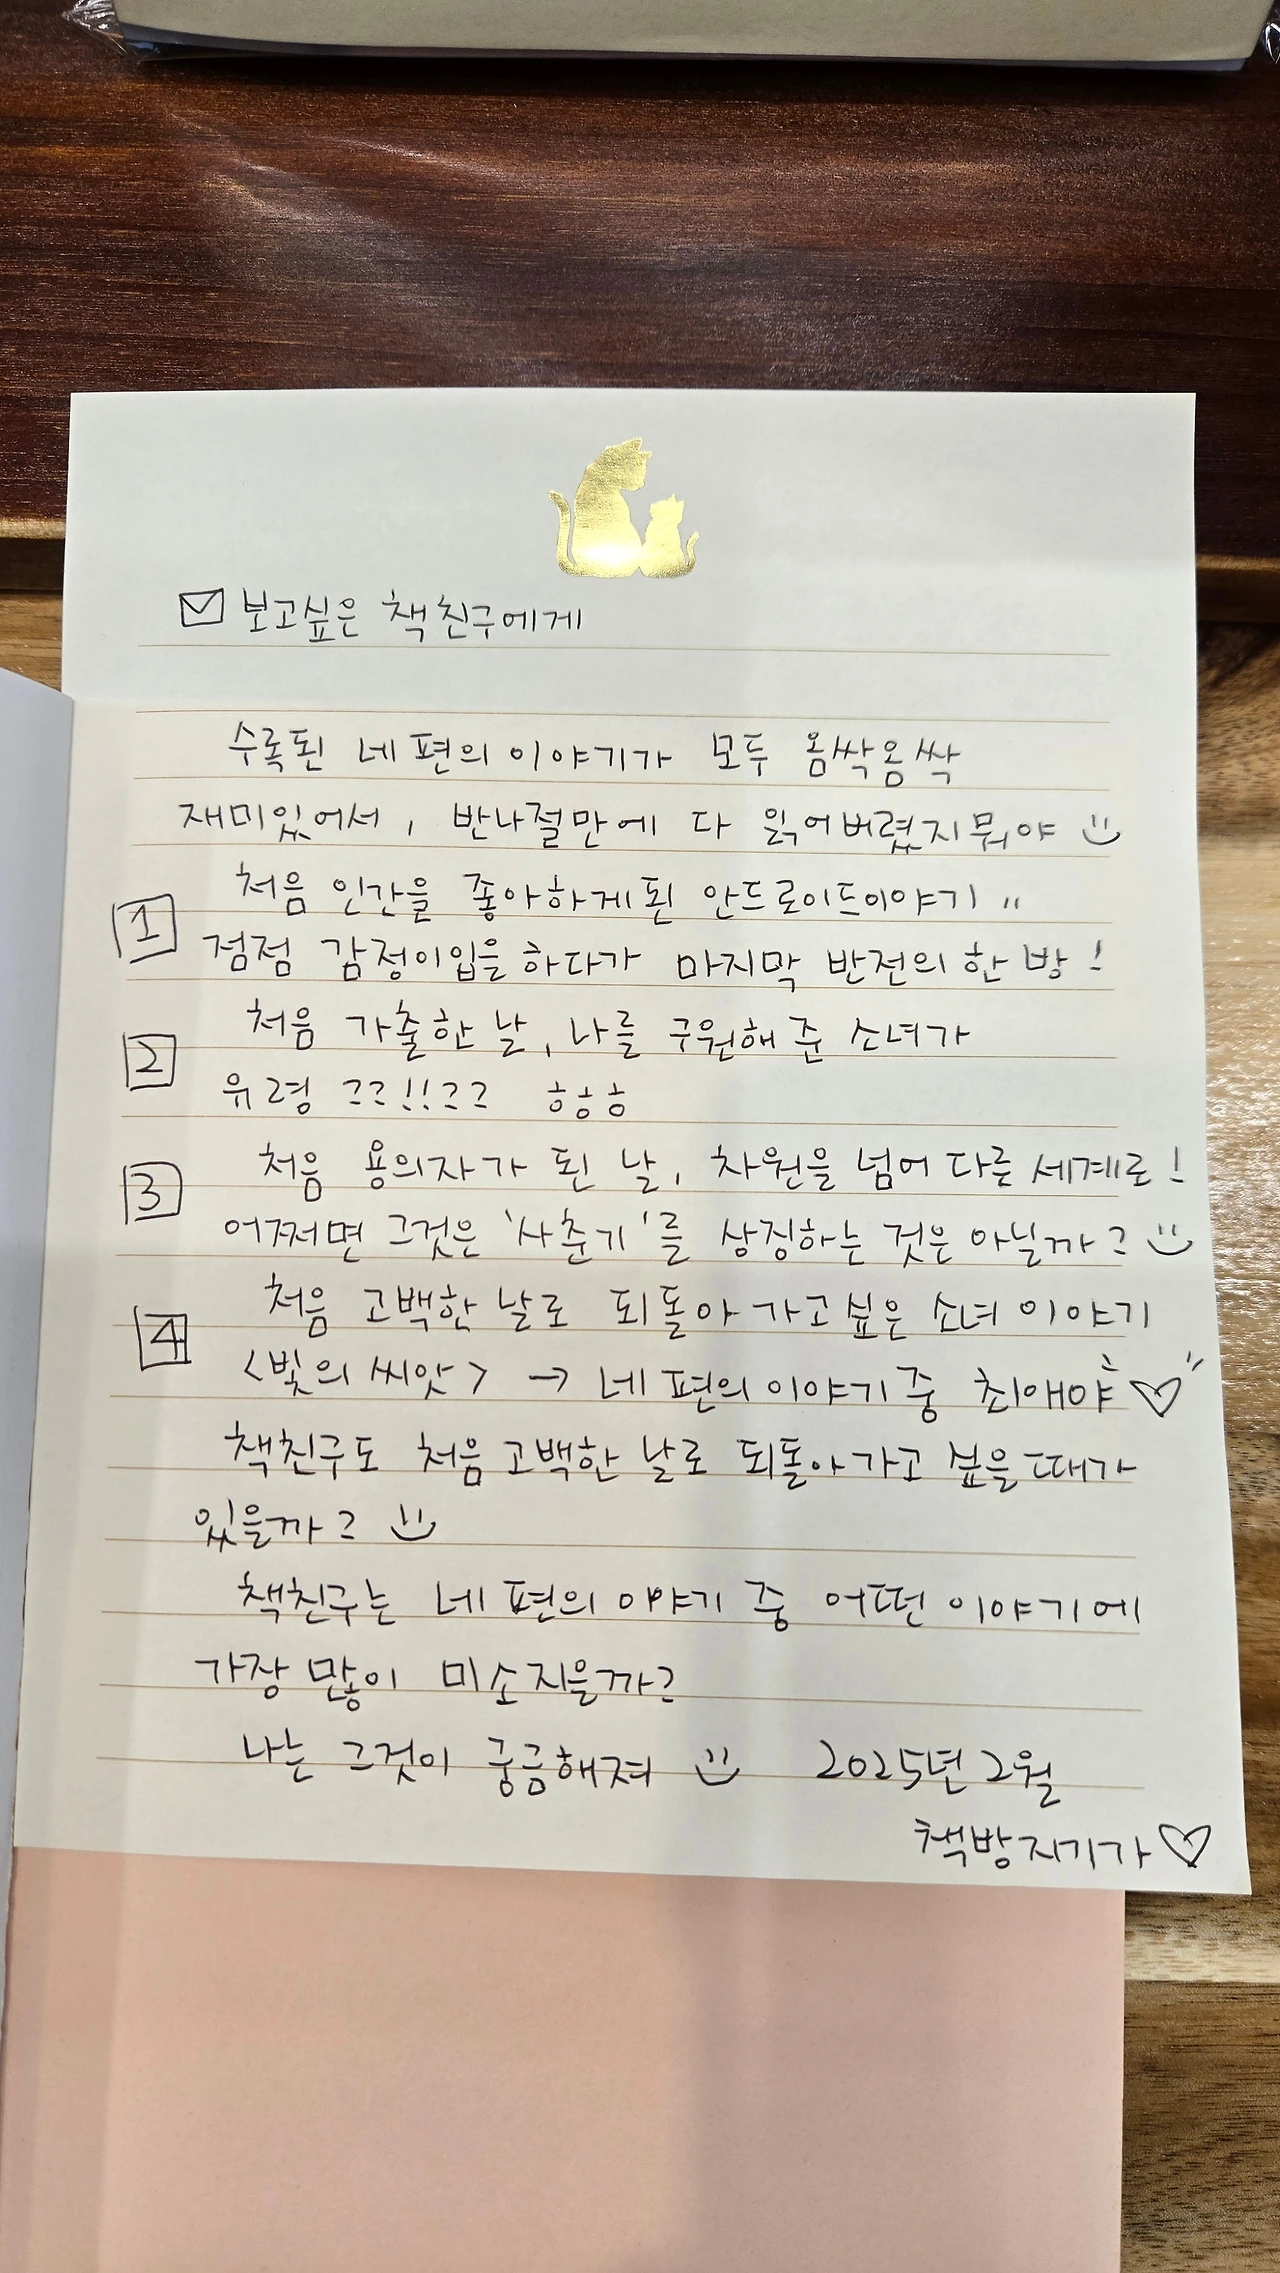 보고싶은 책친구에게
수록된 네 편의 이야기가 모두 옴싹옴싹
재미있어서, 반나절만에 다 읽어버렸지뭐야
처음 인간을 좋아하게된 안드로이드이야기 "
1 점점 감정이입을 하다가 마지막 반전의 한 방!
처음 가출한 날, 나를 구원해 준 소녀가
2 유령 ??!!?? ㅎㅎㅎ
처음 용의자가 된 날, 차원을 넘어 다른 세계로!
3 어쩌면 그것은 '사춘기'를 상징하는 것은 아닐까?
처음 고백한 날로 되돌아 가고싶은 소녀 이야기
4 <빛의 씨앗> → 네 편의 이야기 중 최애야 ♡
책친구도 처음 고백한 날로 되돌아가고 싶을때가
있을까?
책친구는 네 편의 이야기 중 어떤 이야기에
가장 많이 미소지을까?
나는 그것이 궁금해져 2025년 2월
책방지기가 ♡